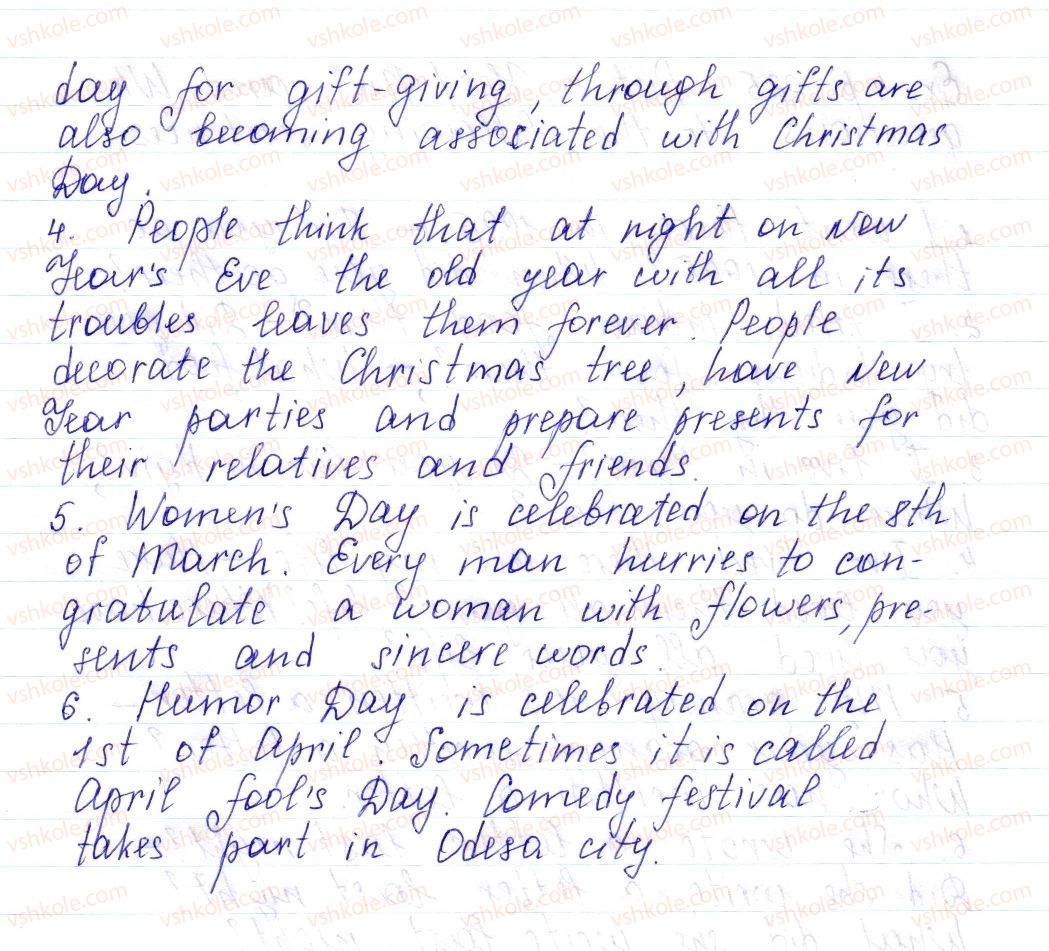 day for gift-giving, through gifts are
also becoming associated with Christmas
Day.
4. People think that at night on New
Year's Eve the old year with all its
troubles leaves them forever. People
decorate the Christmas tree, have New
Year parties and prepare presents for
their relatives and friends.
5. Women's Day is celebrated on the 8th
of March. Every man hurries to con-
gratulate a woman with flowers, pre-
sents and sincere words.
6. Humor Day is celebrated on the
1st of April. Sometimes it is called
April fool's Day. Comedy festival
takes part in Odesa city.
vshkole.com